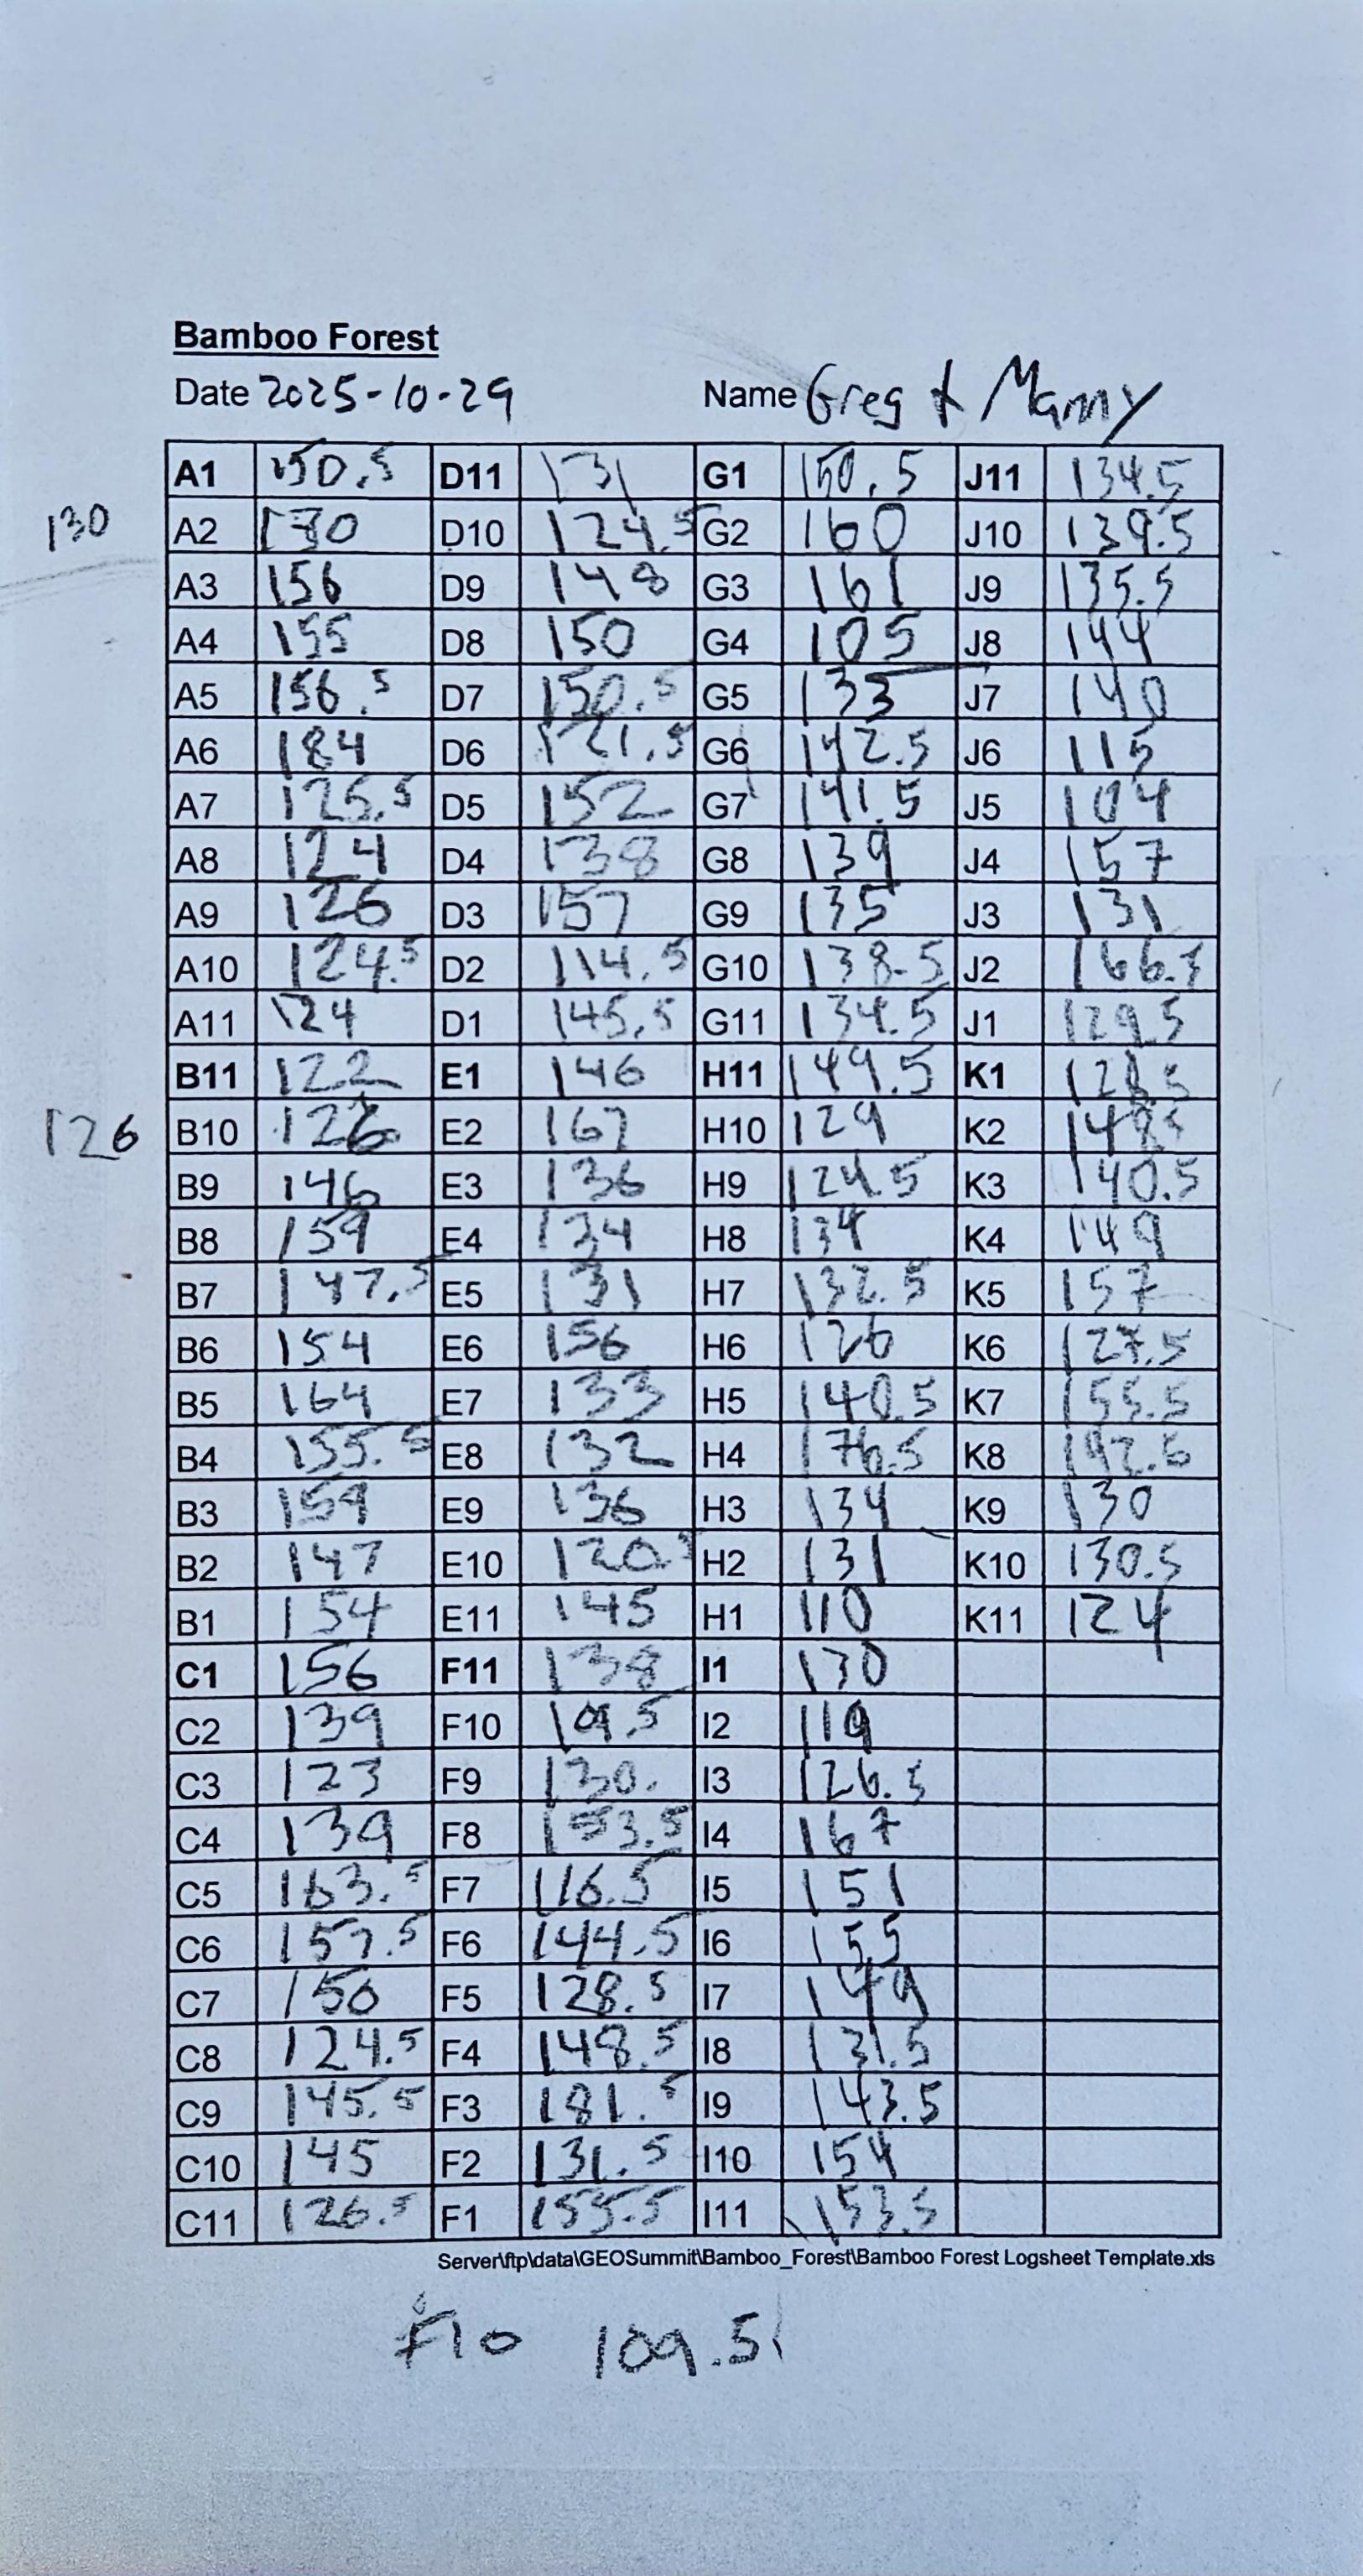 Bamboo Forest
Date 2025-10-29 Name Greg & Manny
A1 150.5 D11 131 G1 150.5 J11 134.5
130 A2 130 D10 124.5 G2 160 J10 139.5
A3 156 D9 148 G3 161 J9 135.5
A4 155 D8 150 G4 105 J8 144
A5 156.5 D7 150.5 G5 133 J7 140
A6 184 D6 121.5 G6 142.5 J6 115
A7 125.5 D5 152 G7 141.5 J5 104
A8 124 D4 138 G8 139 J4 157
A9 126 D3 157 G9 135 J3 131
A10 124.5 D2 114.5 G10 138.5 J2 166.5
A11 124 D1 145.5 G11 134.5 J1 129.5
B11 122 E1 146 H11 149.5 K1
126 B10 126 E2 167 H10 129 K2
B9 146 E3 136 H9 124.5 K3 140.5
B8 159 E4 134 H8 134 K4 149
B7 147.5 E5 131 H7 132.5 K5 157
B6 154 E6 156 H6 126 K6 127.5
B5 164 E7 133 H5 140.5 K7 155.5
B4 155.5 E8 132 H4 176.5 K8 142.5
B3 159 E9 136 H3 134 K9 130
B2 147 E10 120.5 H2 131 K10 130.5
B1 154 E11 145 H1 110 K11 124
C1 156 F11 138 I1 130
C2 139 F10 109.5 I2 119
C3 123 F9 130. I3 126.5
C4 139 F8 153.5 I4 167
C5 163.5 F7 116.5 I5 151
C6 157.5 F6 144.5 I6 155
C7 150 F5 128.5 I7 149
C8 124.5 F4 148.5 I8 131.5
C9 145.5 F3 181.5 I9 143.5
C10 145 F2 131.5 I10 154
C11 126.5 F1 155.5 I11 153.5
Server\ftp\data\GEOSummit\Bamboo_Forest\Bamboo Forest Logsheet Template.xls
F10 109.5